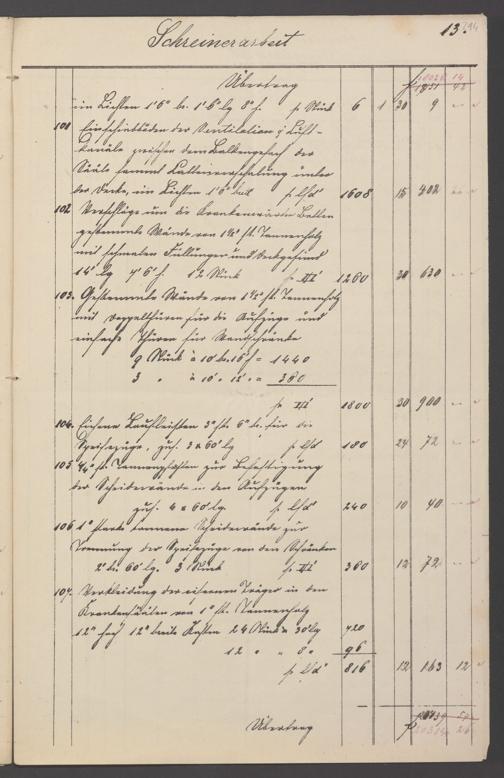 13. 294
Schreinerarbeit
Übertrag f 1931 42
im Lichten 1'6" br. 1'6" lg 8" h. p. Stück 6 1 30 9 — —
101 Einschiebböden der Ventilation & Licht-
Kanäle zwischen dem Balkengefach der
Sääle sammt Lattenverschalung unter
der Decke, im Lichten 1'6" breit p. lfd' 1608 15 402 — —
102. Verschläge um die Krankenwärter Betten
gestemmte Wände von 1¼" st. Tannenholz
mit schmalen Füllungen und Deckgesims
14' lg 7'6" h. 12 Stück p. □' 1260 30 630 — —
103. Gestemmte Wände von 1¼" st. Tannenholz
mit Doppelthüren für die Aufzüge und
einfache Thüren für Wandschränke
9 Stück à 10' br. 16' h = 1440
3 " à 10' " 12' " = 360
p. □' 1800 30 900 — —
104. Eichene Laufleisten 3" st. 6" br. für die
Speisezüge, zus. 3 à 60' lg p. lfd' 180 24 72 — —
105. 4/4" st. Tannenpfosten zur Befestigung
der Scheidewände in den Aufzügen
zus. 4 à 60' lg. p. lfd' 240 10 40 — —
106. 1" starke tannene Scheidewände zur
Trennung der Speisezüge von den Schränken
2' br. 60' lg. 3 Stück p. □' 360 12 72 — —
107. Verkleidung der eisernen Träger in den
Krankensäälen von 1" st. Tannenholz
12" hoch 12" breite Kasten 24 Stück à 30' lg 720
12 " " 8' " 96
p. lfd' 816 12 163 12 —
Übertrag f